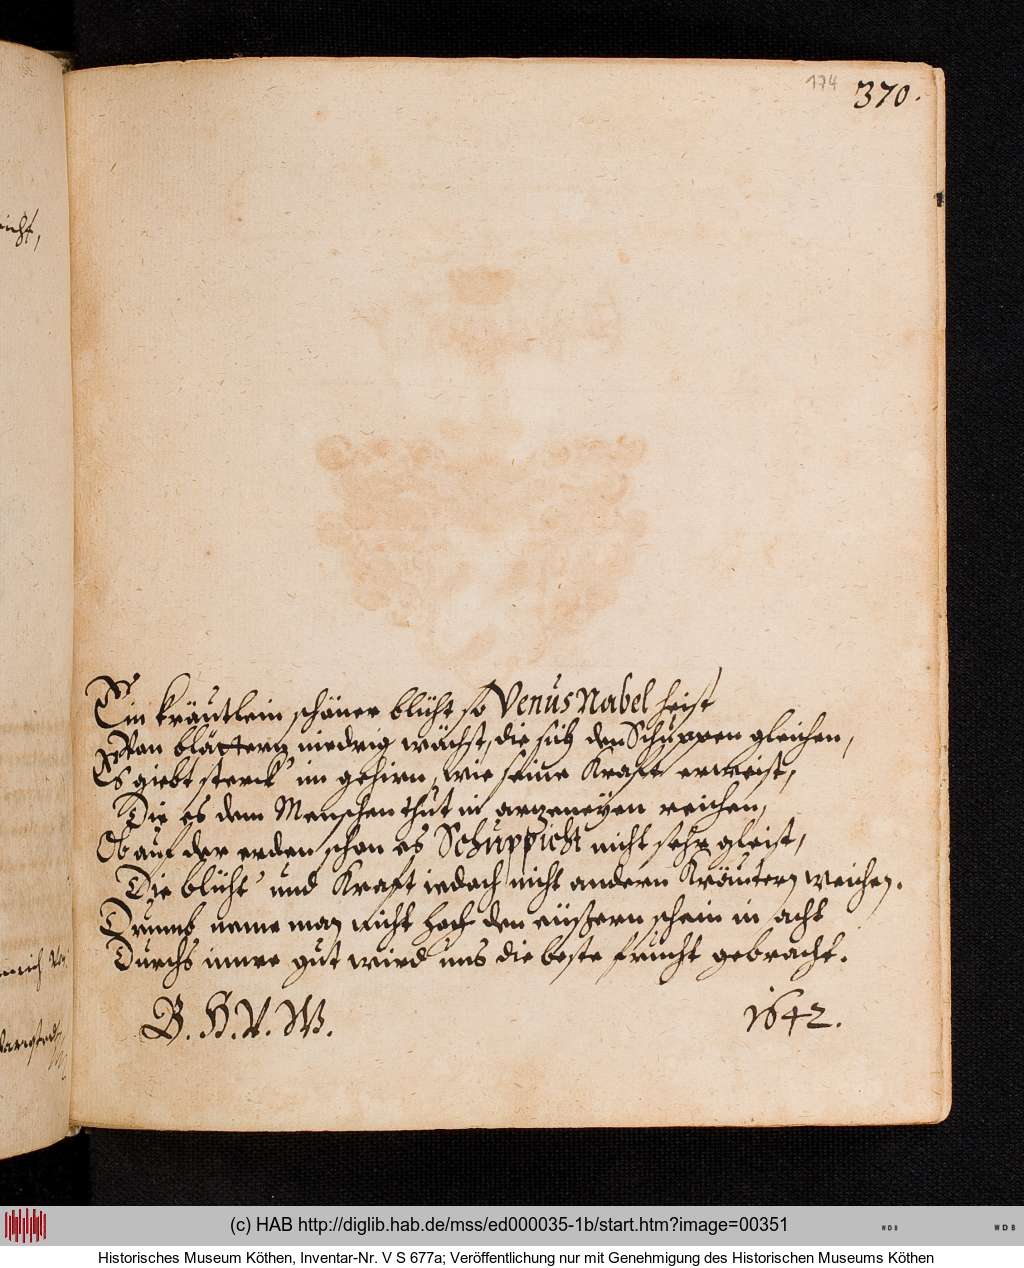 174 370.
icht,
Ein kräutlein schöner blüht so Venus Nabel heist
Von blättern niedrig wächst, die sich den Schuppen gleichen,
Es giebt sterck' im gehirn, wie seine Kraft erweist,
Die es dem Menschen thut in artzeneyen reichen,
Ob auf der erden schon es Schuppicht nicht sehr gleist,
Die blüht' und Kraft iedoch nicht andern Kräutern weichen.
Drumb neme man nicht hoch den eüßern schein in acht
Durchs innre gut wird uns die beste frucht gebracht.
B. H. V. W. 1642.
(c) HAB http://diglib.hab.de/mss/ed000035-1b/start.htm?image=00351
WDB WDB
Historisches Museum Köthen, Inventar-Nr. V S 677a; Veröffentlichung nur mit Genehmigung des Historischen Museums Köthen